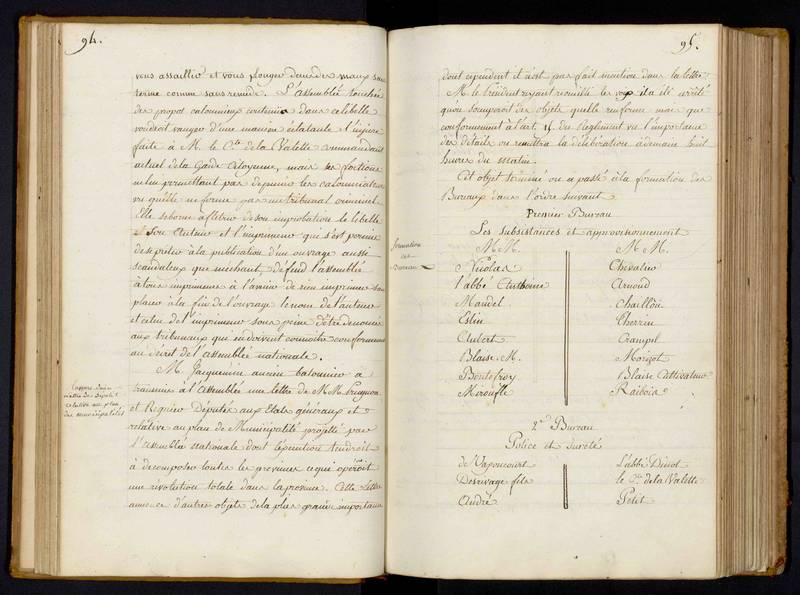 94.
vous assaillir et vous plonger dans des maux sans
terme comme sans remede. L'assemblée touchée
des propos calomnieux contenus dans ce libelle
voudroit vanger d'une maniere éclatante l'injure
faite à M. le Cte. de la Valette commandant
actuel de la Garde Citoyenne, mais ses fonctions
ne lui permettant pas de punir les calomniateurs
vu qu'elle ne forme pas un tribunal criminel.
Elle se borne à flétrir de son improbation le libelle
et son auteur et l'imprimeur qui s'est permis
de se prêter à la publication d'un ouvrage aussi
scandaleux que méchant, défend l'assemblée
à tous imprimeurs à l'avenir de rien imprimer sans
placer à la fin de l'ouvrage le nom de l'auteur
et celui de l'imprimeur sous peine d'être denoncés
aux tribunaux qui en doivent connoitre conformement
au décret de l'assemblée nationale.
M. Jacqueminin ancien batonnier a
transmis à l'Assemblée une lettre de MM. Prugnon
et Regnier Députés aux Etats généraux et
relative au plan de Municipalité projetté par
l'Assemblée nationale dont l'exécution tendroit
à décomposer toutes les provinces ce qui opéreroit
une révolution totale dans la province. Cette lettre
annonce d'autres objets de la plus grande importance
relative au plan
des municipalités
95.
dont cependant il n'est pas fait mention dans la lettre.
M. le Président ayant recueilli les voix il a été arrêté
qu'on s'occuperoit des objets qu'elle renferme mais que
conformement à l'art. 15. du Reglement vu l'importance
des détails on remettra la délibération à demain huit
heures du matin.
Cet objet terminé on a passé à la formation des
Bureaux dans l'ordre suivant
formation
des
Bureaux
Premier Bureau
Les subsistances et approvisionnement
MM. MM.
Nicolas Chevalier
l'abbé Anthoine Arnoud
Mandel Chaillou
Eslin Cherrin
Aubert Crampel
Blaise M. Morgot
Bontefroy Blaise Cultivateur
Miroufle Raibois
2nd. Bureau
Police et Sureté
de Vapoucourt L'abbé Dinot
Desrivage fils le Cte. de la Valette
André Petit